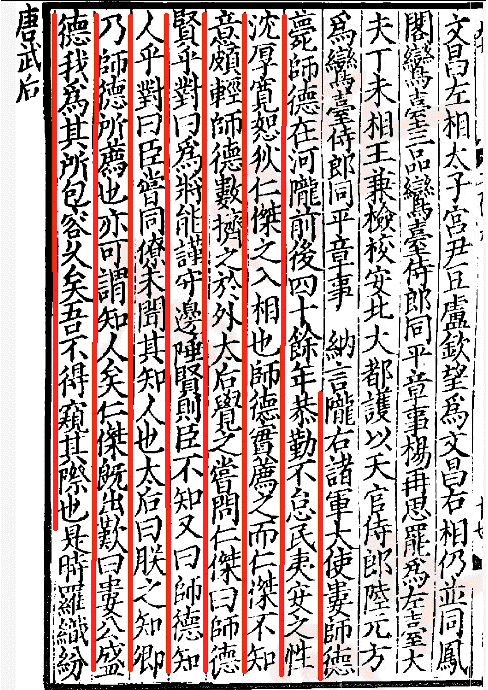 文昌左相太子宮尹豆盧欽望爲文昌右相仍並同鳳
閣鸞臺三品鸞臺侍郎同平章事楊再思罷爲左臺大
夫丁未相王兼檢校安北大都護以天官侍郎陸元方
爲鸞臺侍郎同平章事　納言隴右諸軍大使婁師德
薨師德在河隴前後四十餘年恭勤不怠民夷安之性
沈厚寬恕狄仁傑之入相也師德實薦之而仁傑不知
意頗輕師德數擠之於外太后覺之嘗問仁傑曰師德
賢乎對曰爲將能謹守邊陲賢則臣不知又曰師德知
人乎對曰臣嘗同僚未聞其知人也太后曰朕之知卿
乃師德所薦也亦可謂知人矣仁傑既出歎曰婁公盛
德我爲其所包容久矣吾不得窺其際也是時羅織紛
唐武后